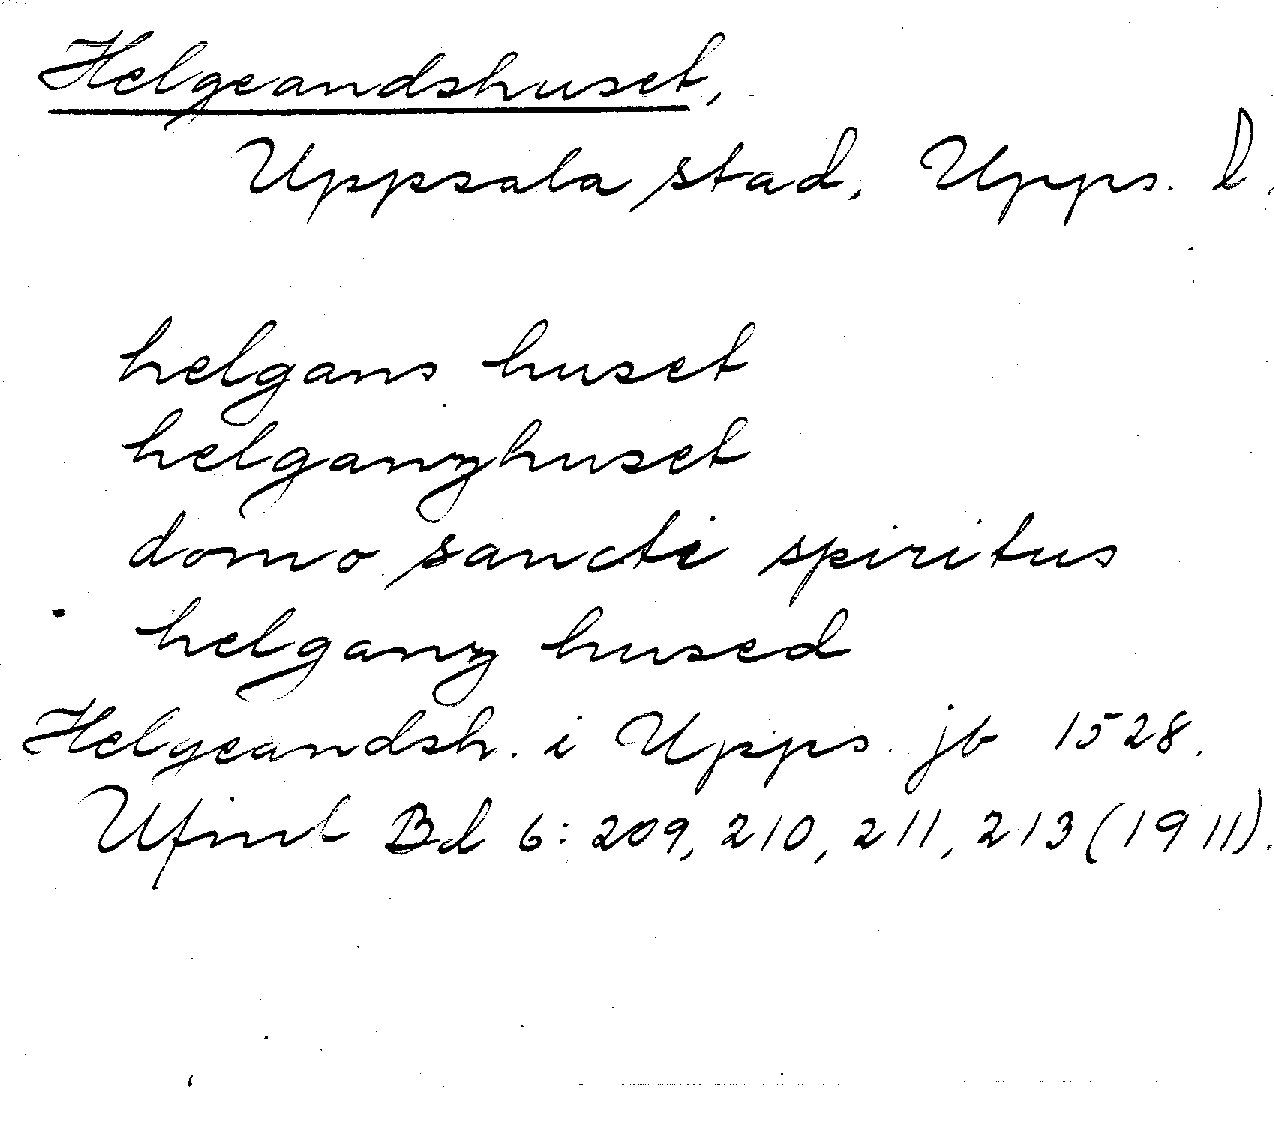 Helgeandshuset,
Uppsala stad, Upps. l.
helgans huset
helganzhuset
domo sancti spiritus
helganz hused
Helgeandsh. i Upps. jb 1528.
Ufmt Bd 6: 209, 210, 211, 213 (1911).